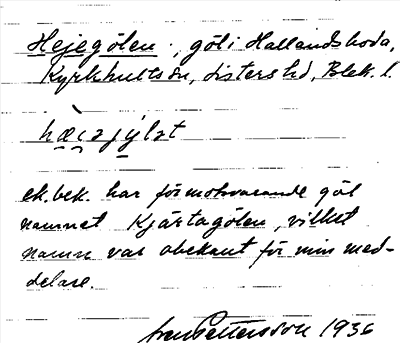 Hejegölen, göl i Hallandsboda,
Kyrkhults sn, Listers hd, Blek. l.
ek. bek. har för motsvarande göl
namnet Kjärtagölen, vilket
namn var obekant för min med-
delare.
Pettersson 1936